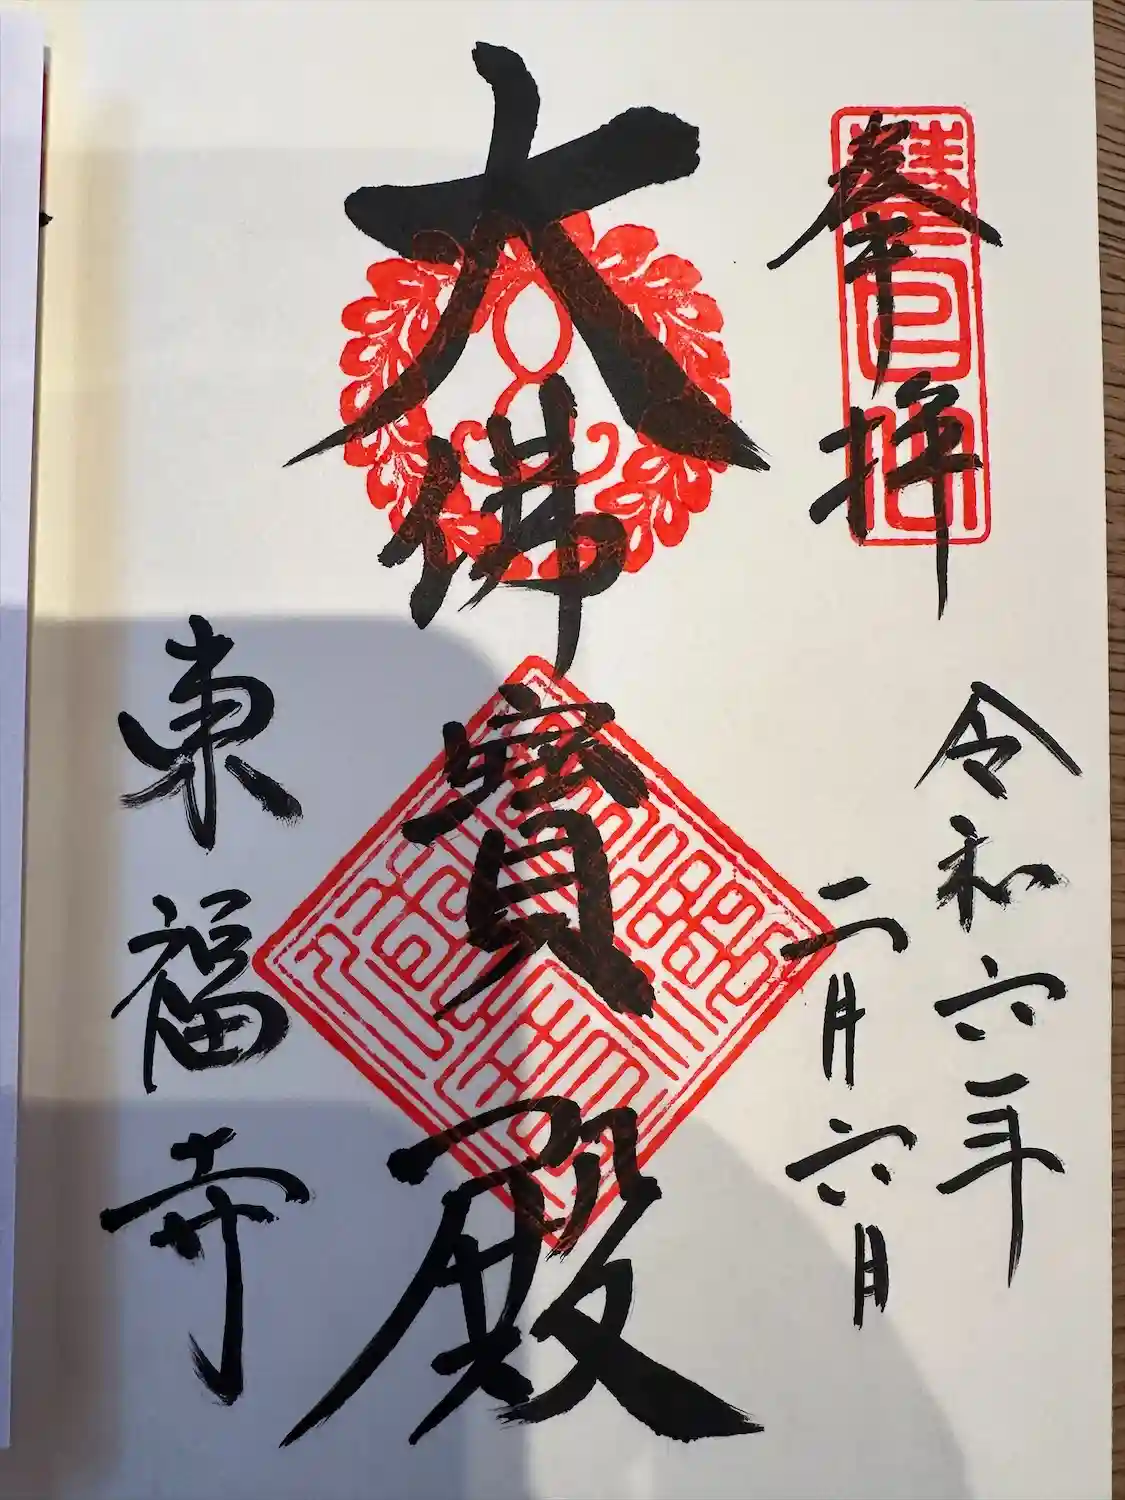 奉拝
慧日山
令和六年
二月六日
大佛寶殿
東福寺